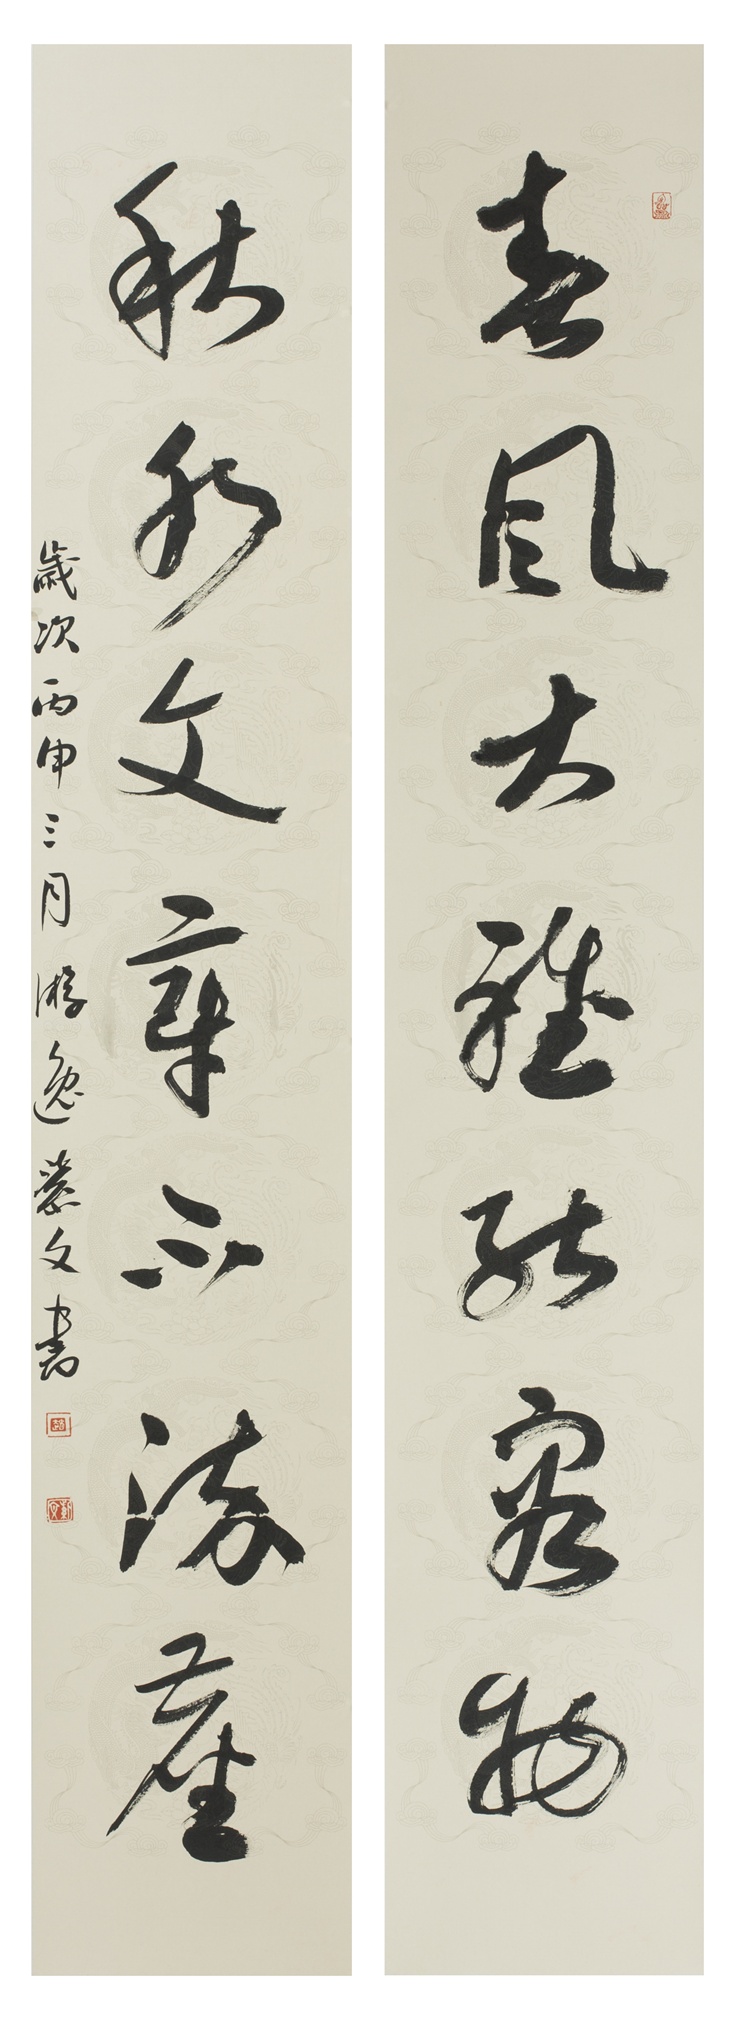 春風大雅能容物
秋水文章不染塵
歲次丙申三月游逸慕文書